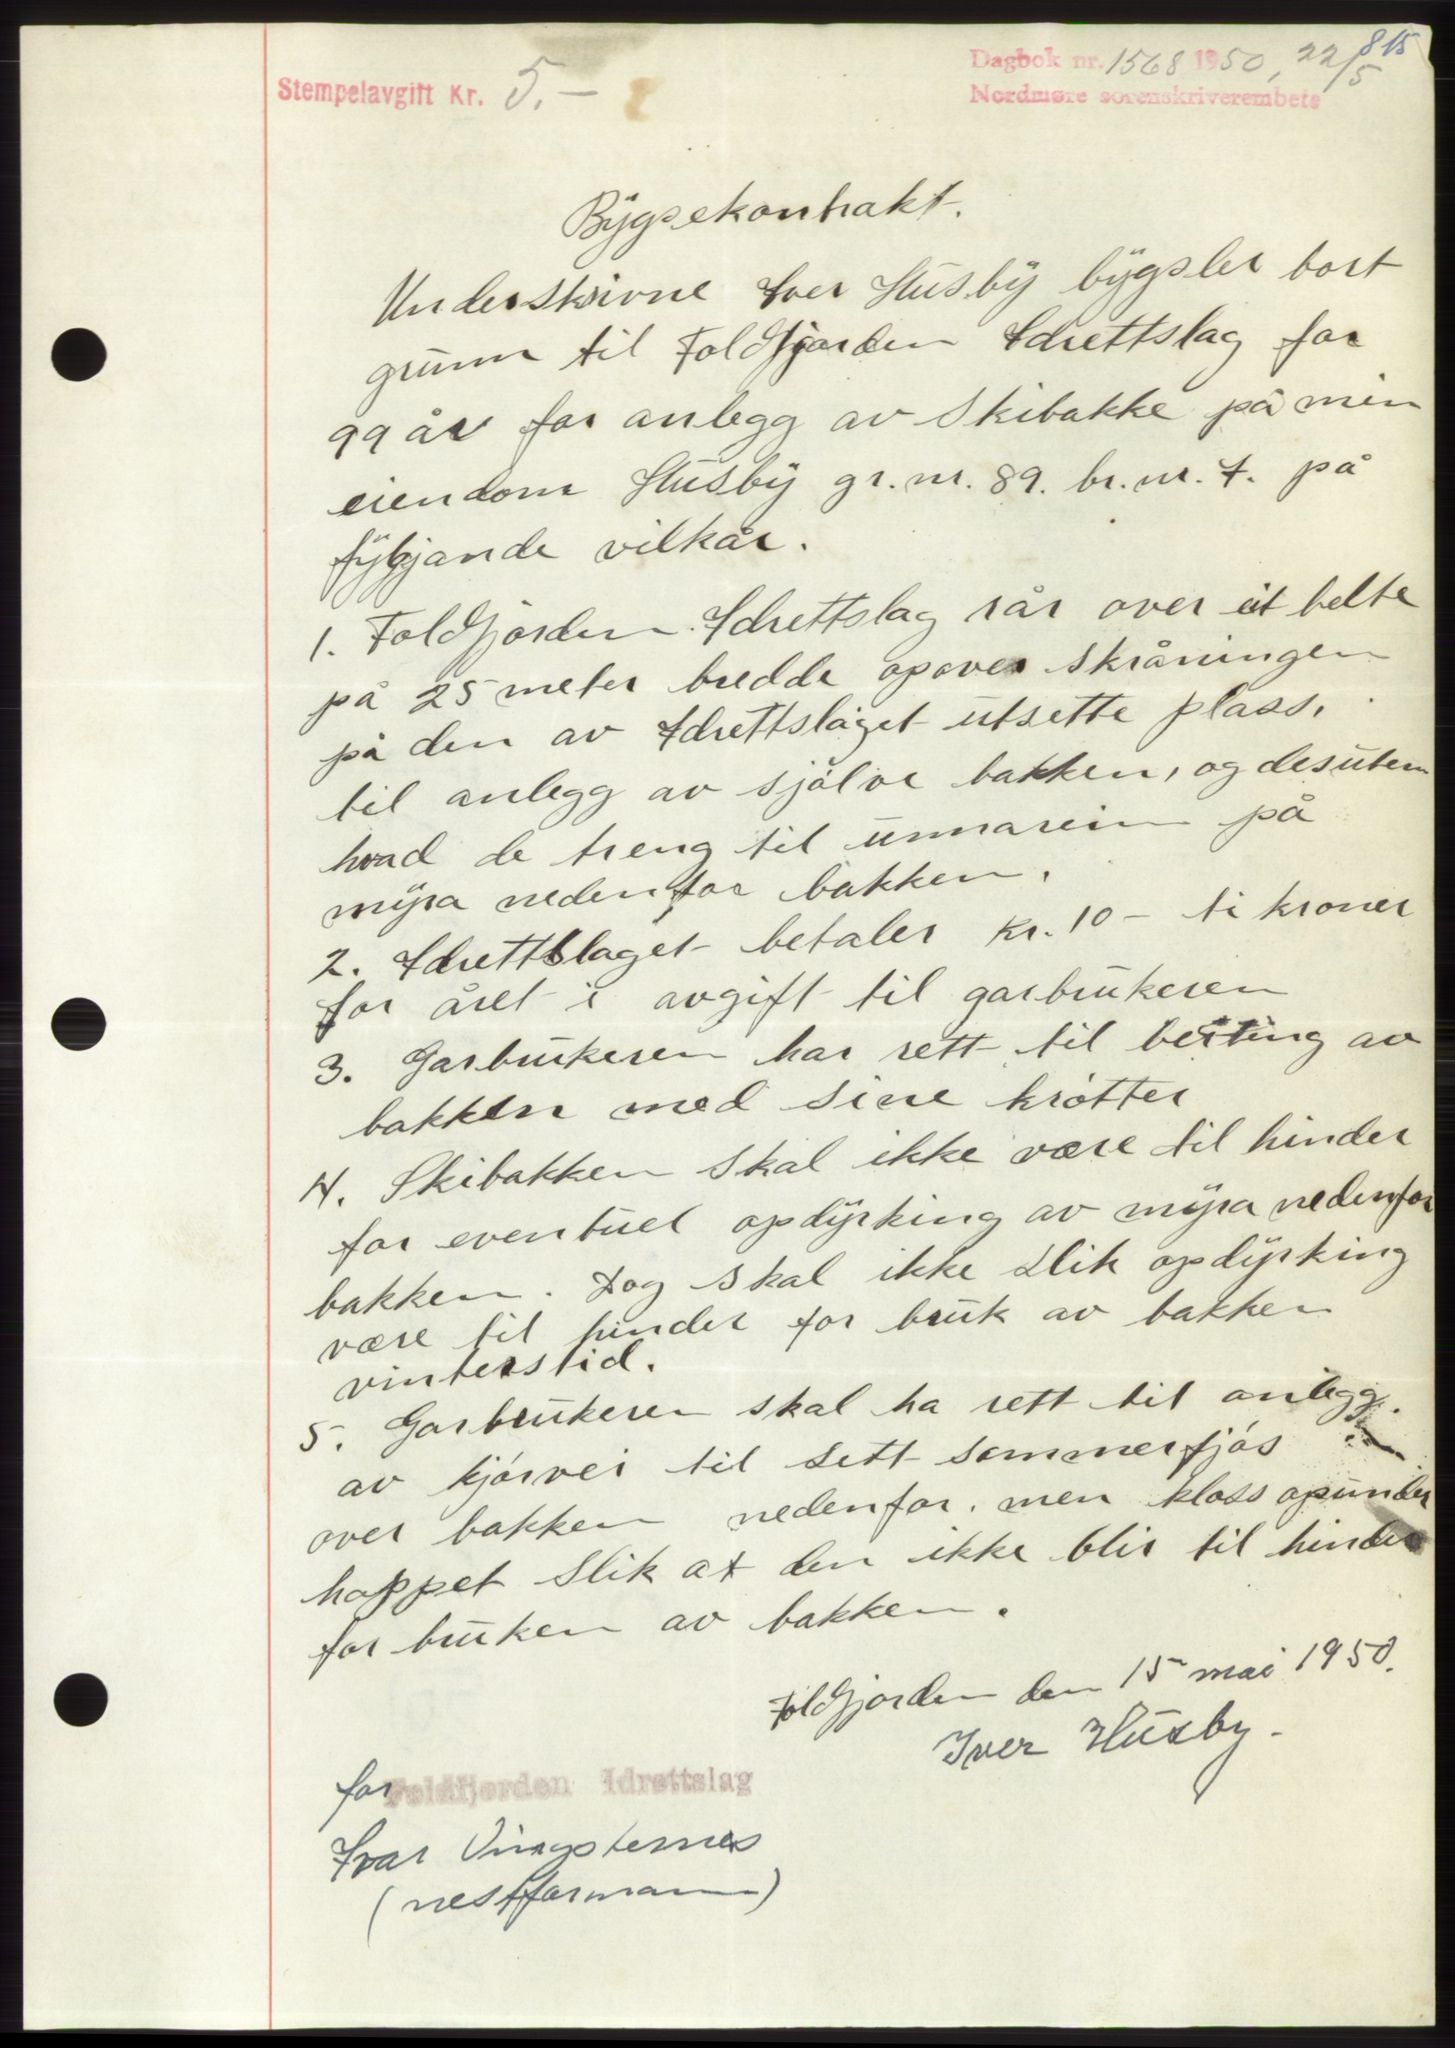 815
Dagbok nr. 1568 1950, 22/5
Stempelavgift Kr. 5.-
Nordmøre sorenskriverembete
Bygsekontrakt.
Underskrivne Iver Husby bygsler bort
grunn til Foldfjorden Idrettslag for
99 år for anlegg av Skibakke på min
eiendom Husby gr. nr. 89. br. nr. 7. på
fylgjande vilkår.
1. Foldfjorden Idrettslag rår over eit belte
på 25 meter bredde opover skråningen
på den av Idrettslaget utsette plass,
til anlegg av sjølve bakken, og desutem
hvad de treng til unnarein på
myra nedenfor bakken.
2. Idrettslaget betaler kr. 10 - ti kroner
for året i avgift til garbrukeren
3. Garbrukeren har rett til beiting av
bakken med sine krøtter
4. Skibakken skal ikke være til hinder
for eventuel opdyrking av myra nedenfor
bakken. Dog skal ikke slik opdyrking
være til hinder for bruk av bakken
vinterstid.
5. Garbrukeren skal ha rett til anlegg.
av kjørvei til sett sommerfjøs
over bakken nedenfor, men kloss opunder
hoppet slik at den ikke blir til hinder
for bruken av bakken.
Foldfjorden den 15 mai 1950.
Iver Husby.
for Foldfjorden Idrettslag
Ivar Vingsternes
(nestformann)